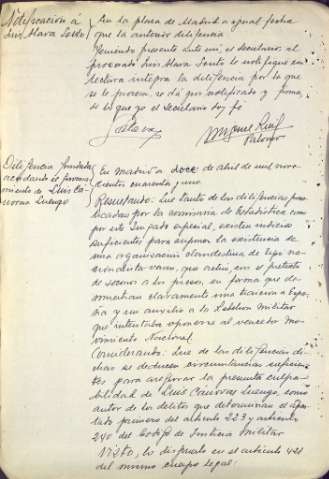 Notificación á
Luis Alara Sorde
En la plaza de Madrid a igual fecha
que la anterior diligencia
Teniendo presente ante mi, el Secretario, al
procesado Luis Alara le notifiqué en
lectura integra la diligencia por la que
se le procesa, se da por notificado y firma,
de lo que yo el Secretario doy fé
Miguel Ruiz
Diligencia fundada
acordando el procesa-
miento de Luis Cá-
novas Luengo.
En Madrid a doce de abril de mil nove-
cientos cuarenta y uno.
Resultando: Que tanto de las diligencias prac-
ticadas por la Comisaria de Estadistica como
por este Juzgado especial, existen indicios
suficientes para suponer la existencia de
una organización clandestina de tipo ma-
sonico, que actua, con el pretexto
de socorro a los presos, en forma que de-
muestran claramente una traición a Espa-
ña y un auxilio a la rebelion militar
que intentaba oponerse al vencedor Mo-
vimiento Nacional
Considerando: Que de las diligencias
dichas se deducen circunstancias suficien-
tes para apreciar la presunta culpa-
bilidad de Luis Cánovas Luengo, como
autor de los delitos que determinan el apar-
tado primero del articulo 223 y articulo
240 del Codigo de Justicia Militar
Visto, lo dispuesto en el articulo 421
del mismo cuerpo legal: